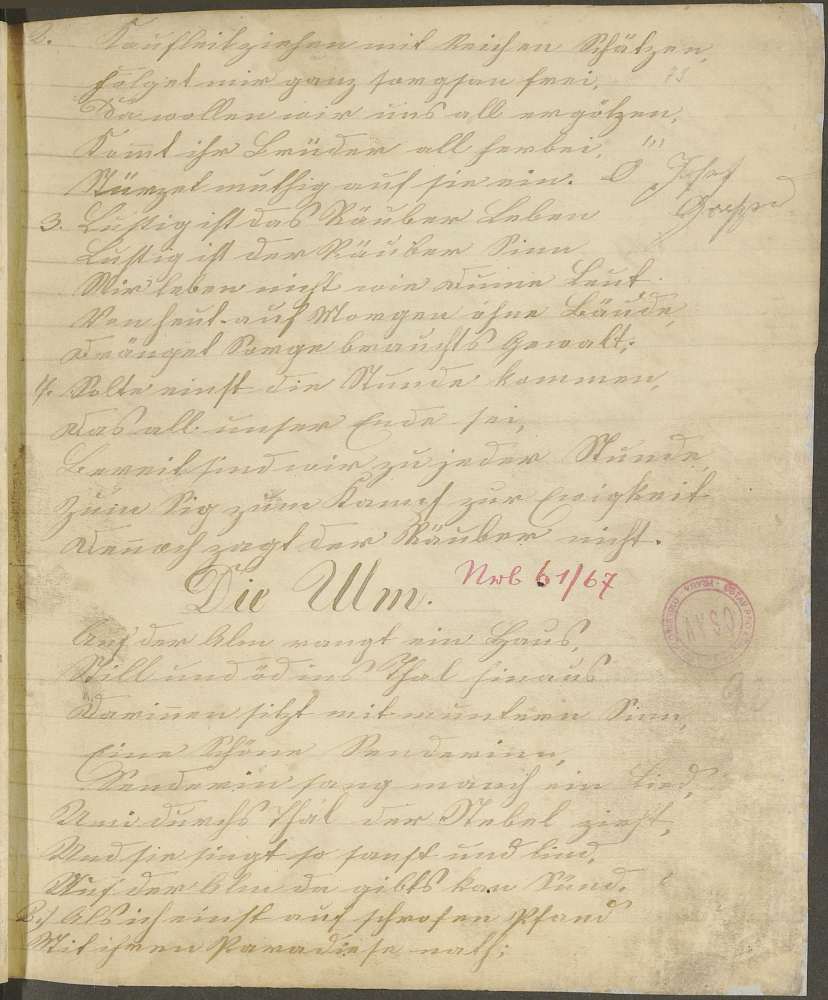 2. Kaufleit ziehen mit Reichen Schätzen,
folget mir ganz sorgsam frei, 73
Da wollen wir uns all ergötzen,
Kommt ihr Brüder all herbei,
Stürzet muthig auf sie ein. O Josef
3. Lustig ist das Räuber Leben
Lustig ist der Räuber Sinn
Wir leben nicht wie Leut
Von heut auf Morgen ohne
Sorge brauchts Gewalt;
4. Solte einst die Stunde kommen,
Das all unser Ende sei,
Bereit sind wir zu jeder Stunde,
Zum Sig zum Kampf zur Ewigkeit
Dennoch zagt der Räuber nicht.
Die Ulm. Nro 61/67
Auf der Alm rangt ein Haus,
Still und öd ins Thal hinaus
Darinnen sitzt mit muntern Sinn,
Eine Schöne Senderinn,
Senderin sang manch ein Lied,
Wen durchs Thal der Nebel zieht,
Und sie singt so sanft und lind,
Auf der Alm da gibts kan Sünd.
2.) Als ich einst auf schrofen Pfand
Mit ihren Paradiese nath;